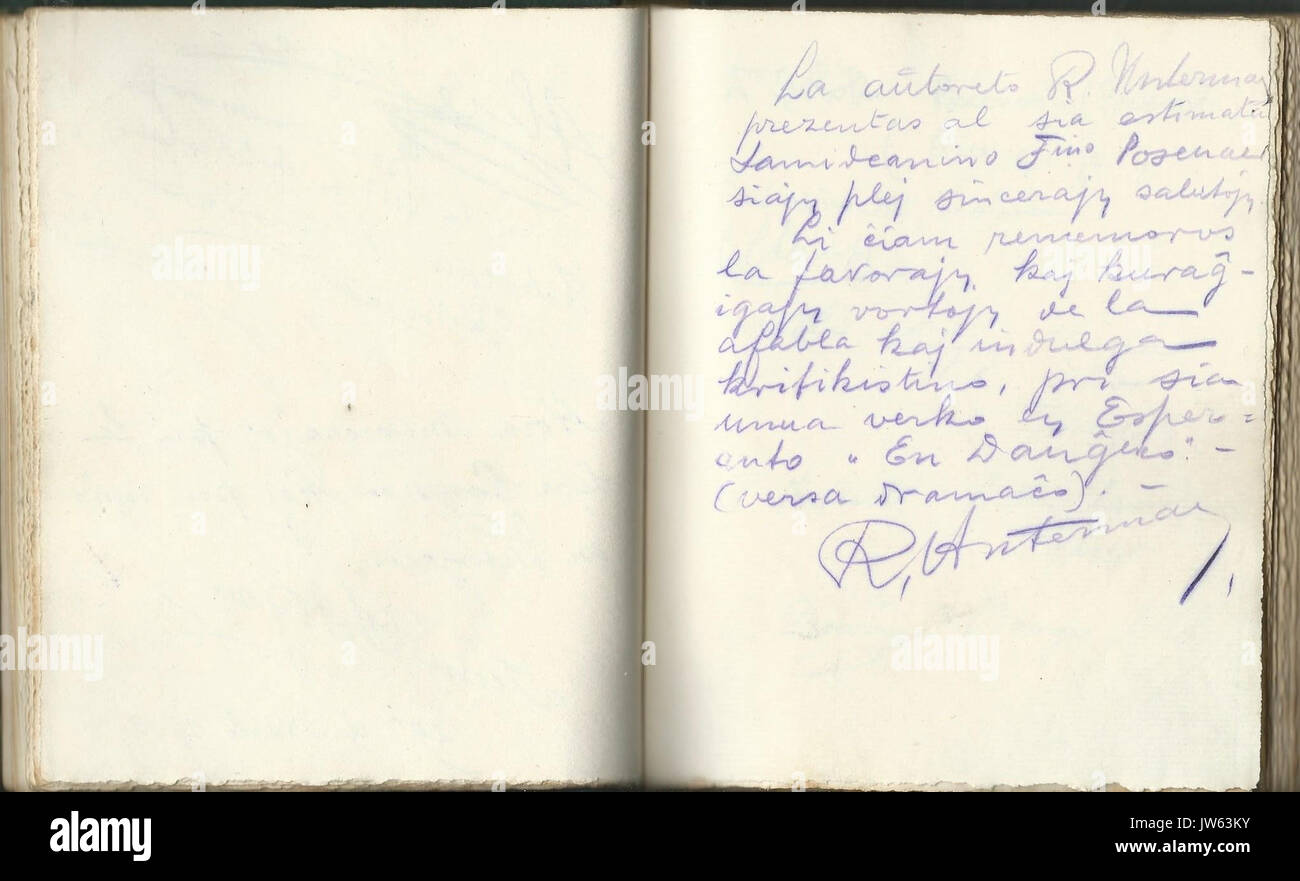 La aŭtoreto R. Unterman
prezentas al sia estimata
Samideanino Fino Posenaer
siajn plej sincerajn salutojn.
Li ĉiam rememoros
la favorajn kaj kuraĝ-
igajn vortojn de la
afabla kaj indulga
kritikistino, pri sia
unua verko en Esper=
anto "En Danĝero". -
(versa dramaĉo). -
R. Unterman
alamy
alamy
alamy
alamy
alamy
alamy
a
a
a
a
a
alamy
Image ID: JW63KY
www.alamy.com